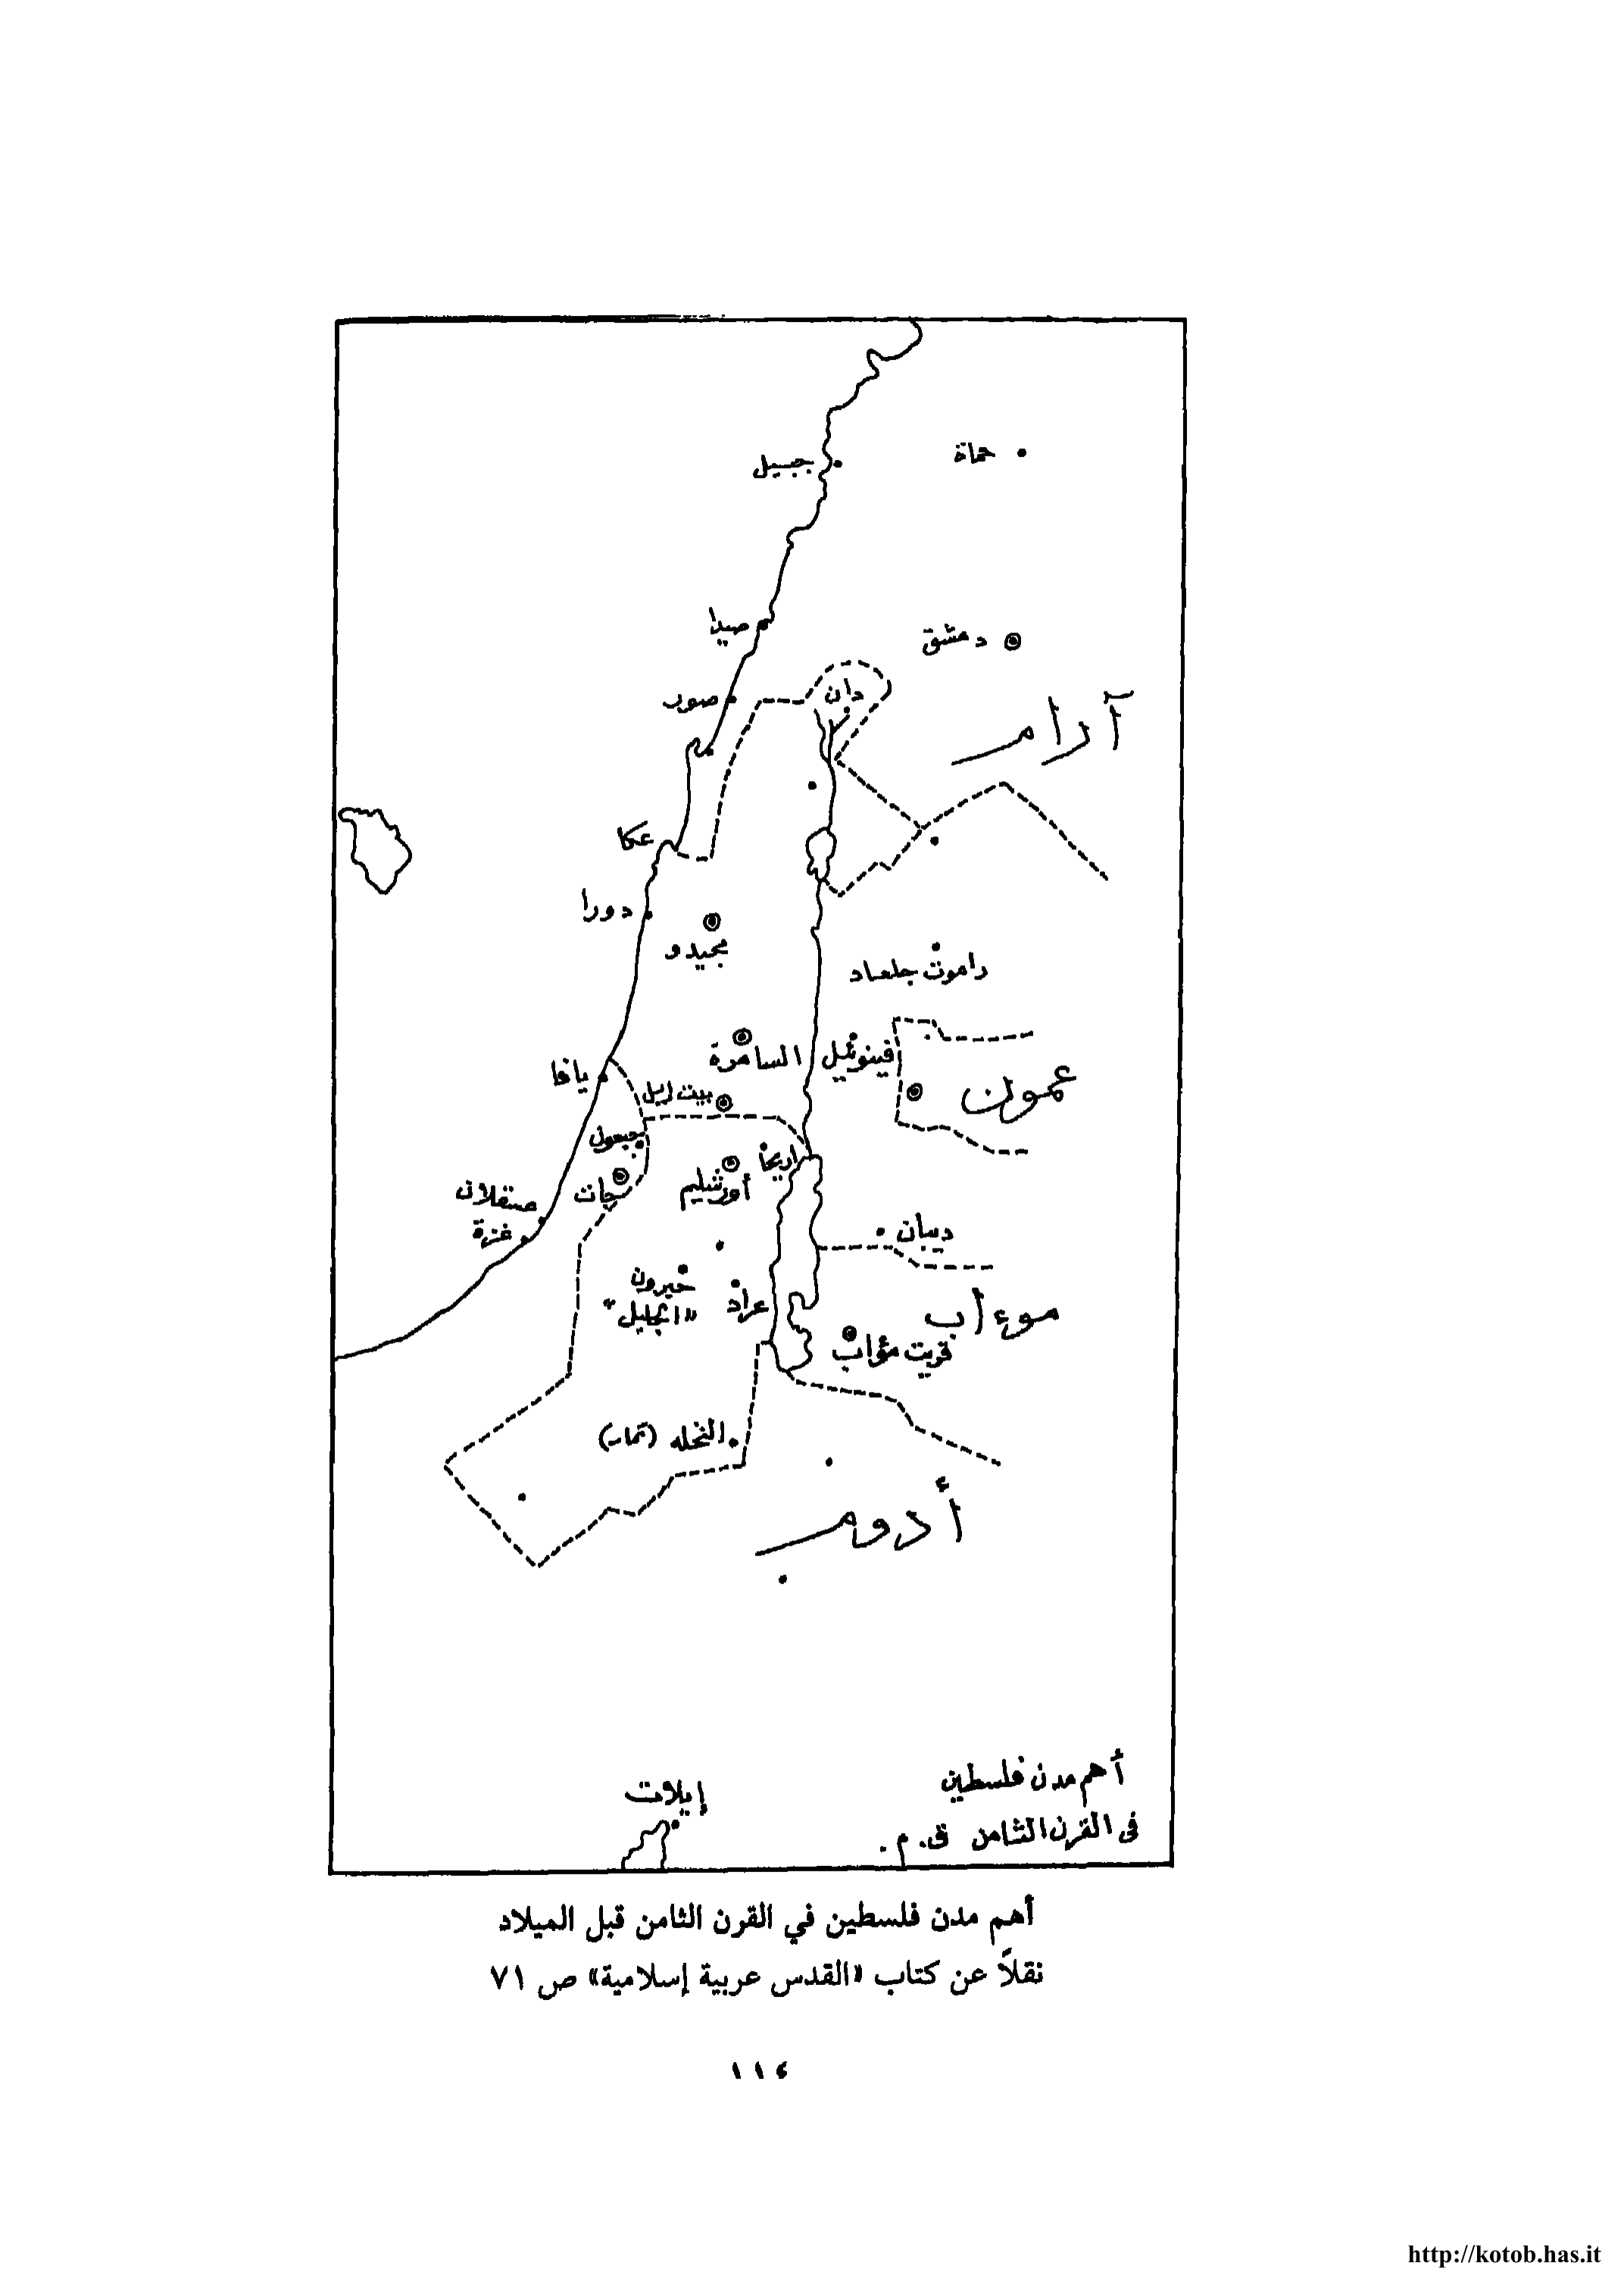 حماة
جبيل
دمشق
صيدا
دان
صور
آرام
عكا
دورا
مجيدو
راموت جلعاد
السامرة
فينوئيل
يافا
عمون
بيت ايل
جبعون
اريحا
أورشليم
جات
عسقلان
غزة
ديبان
حبرون
"الجليل"
عراد
موءاب
قريت مؤاب
النخله (تمار)
أدوم
إيلات
أهم مدن فلسطين
فى القرن الثامن ق.م.
أهم مدن فلسطين في القرن الثامن قبل الميلاد
نقلاً عن كتاب «القدس عربية إسلامية» ص ٧١
١١٤
http://kotob.has.it